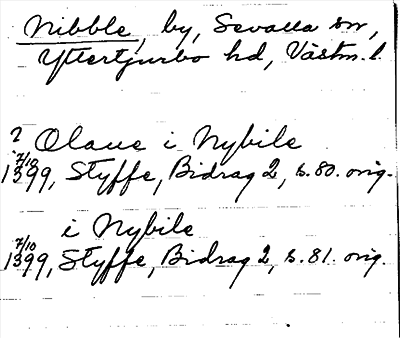 Nibble, by, Sevalla sn,
Yttertjurbo hd, Västm. l.
? Olaue i Nybile
7/10
1399, Styffe, Bidrag 2, s. 80. orig.
i Nybile
7/10
1399, Styffe, Bidrag 2, s. 81. orig.